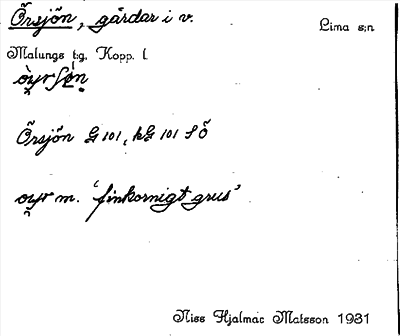 Örsjön, gårdar i v. Lima s:n
Malungs tg. Kopp. l.
Örsjön G 101, kG 101 S Ö
m. 'finkornigt grus'
Niss Hjalmar Matsson 1931